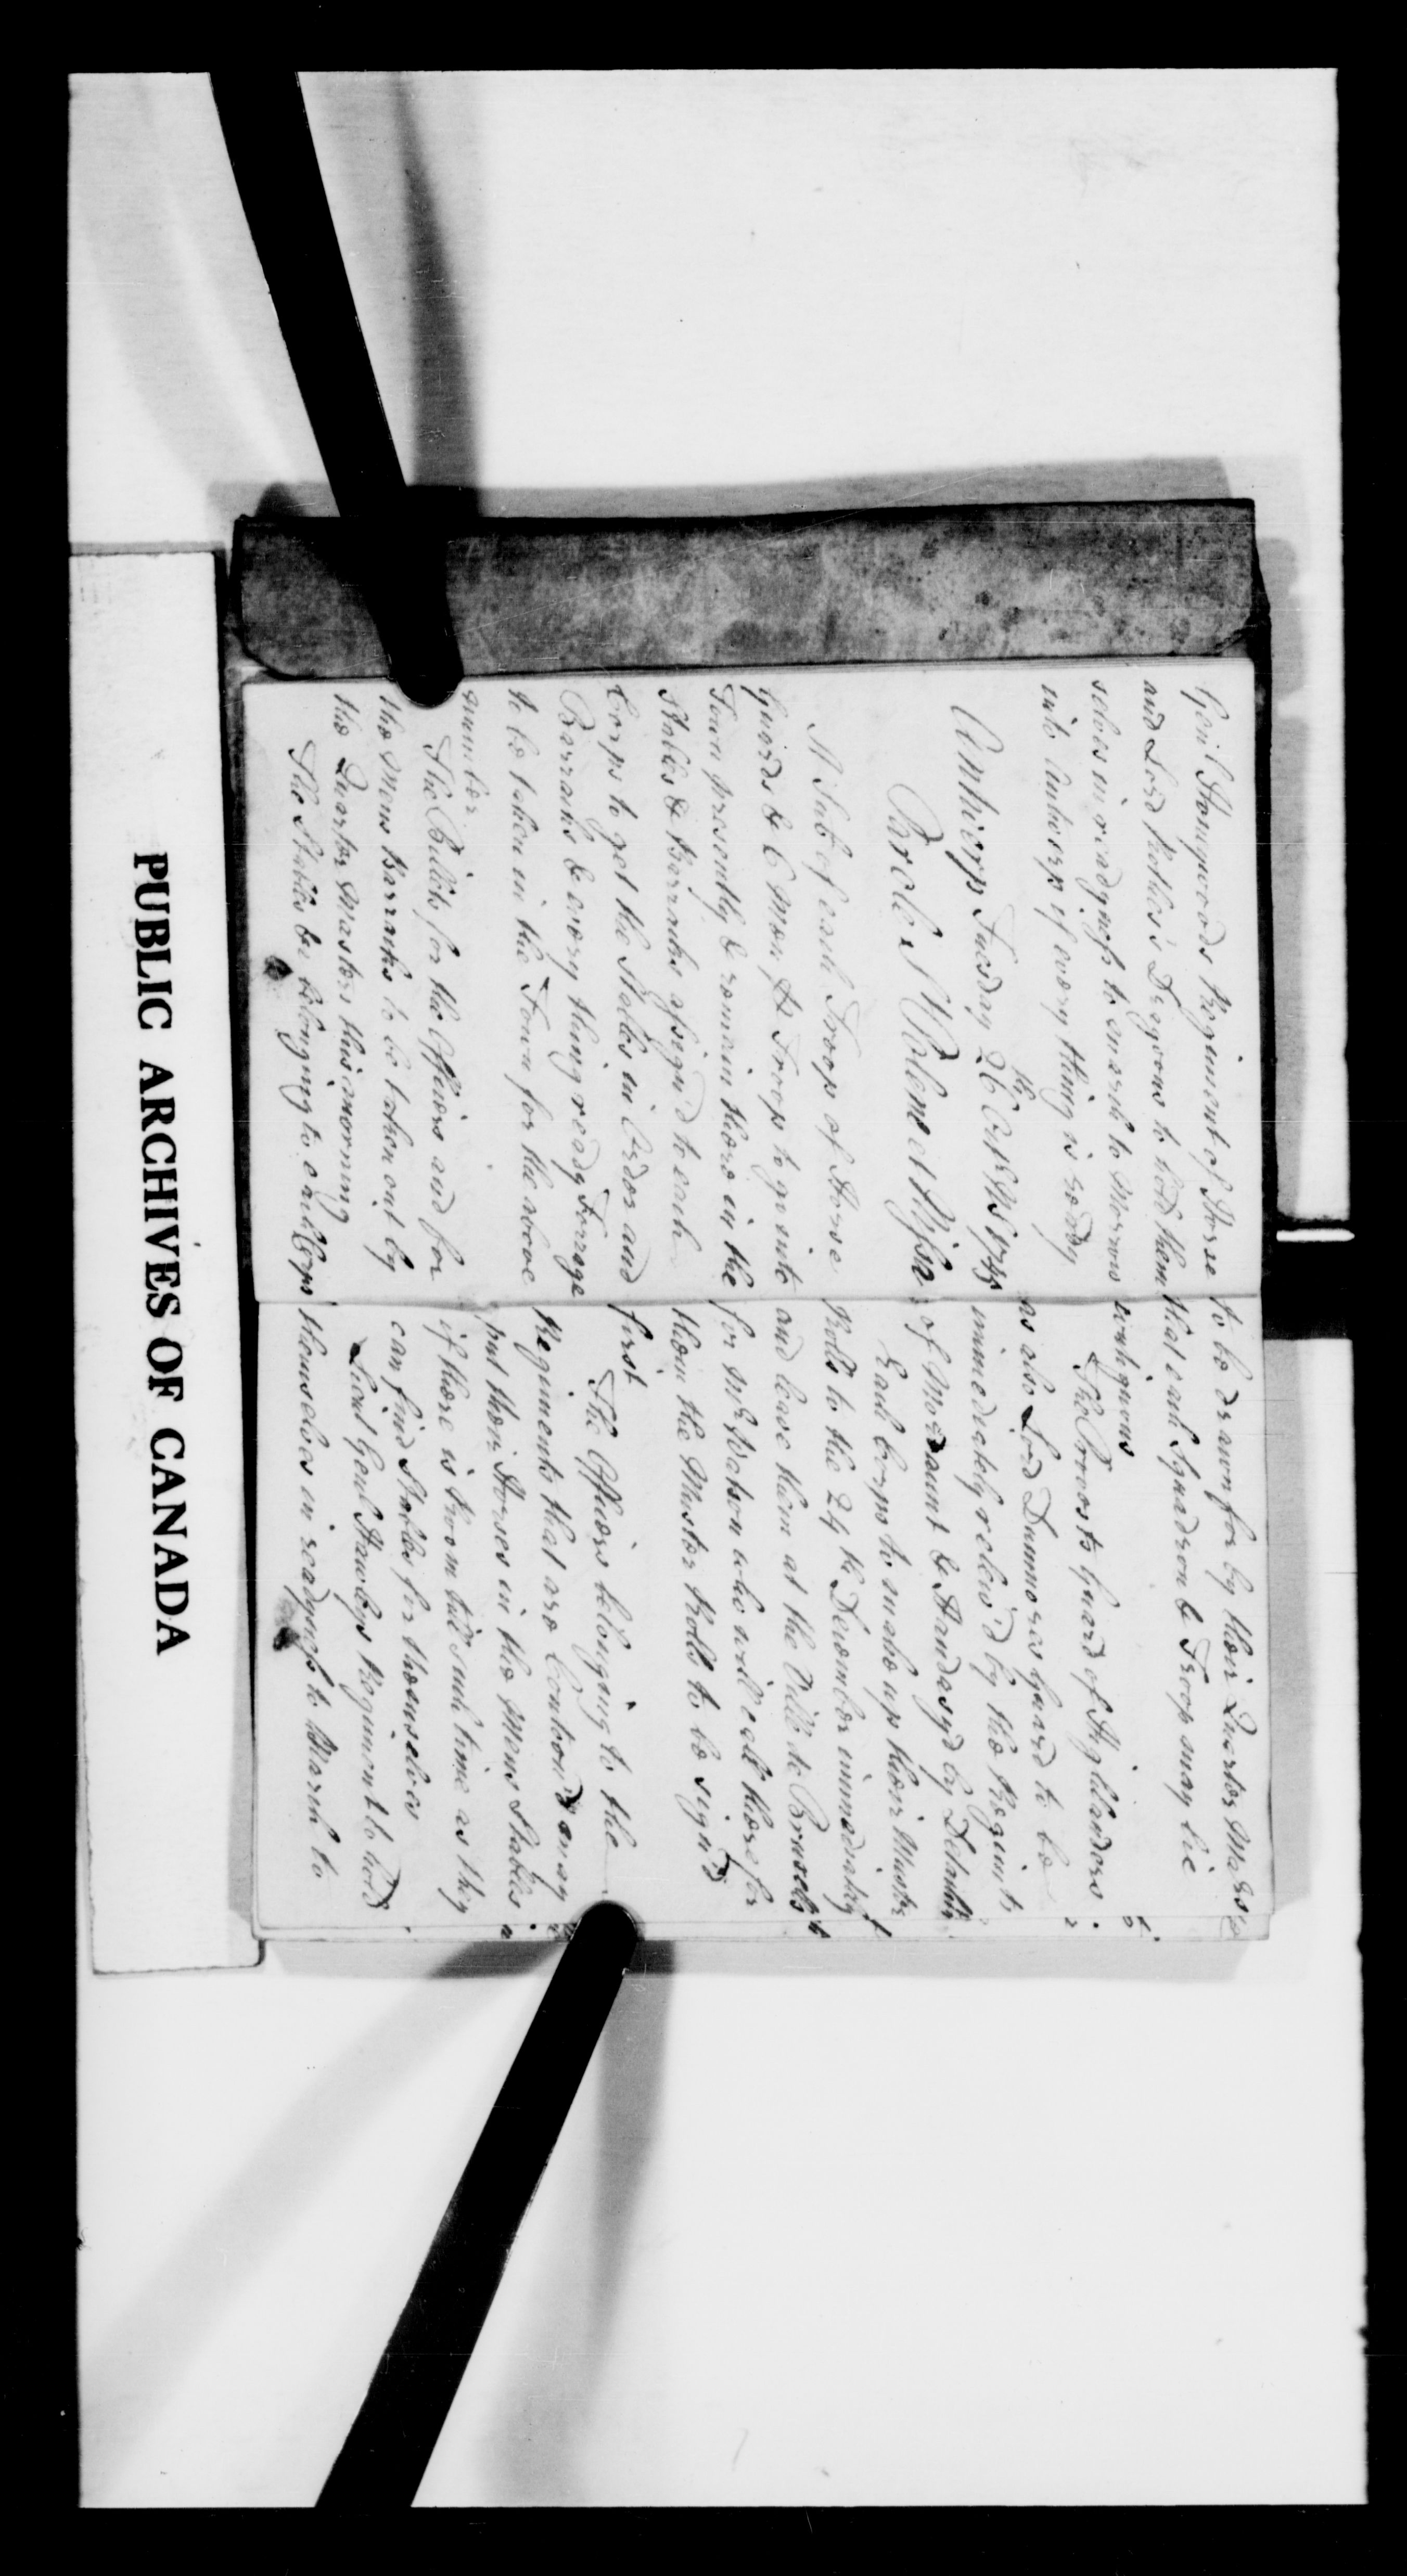 Gen:l Hamgwoods Regiment of Horse
and Lord Rothes's Dragoons to hold them
selves in readyness to march to Morrow
into Antwerp if every thing is ready
Antwerp Tuesday 26th Oct:r NS 1745
Parole St Wolems et Lysa
A Sub of each Troop of Horse
Guards & 6 Men Troop to go into
Town presently & remain there in the
Stables & Barracks assign'd to each
Corps to get the Stables in Order and
Barracks & every thing ready Forrage
to be taken in the Town for the above
number
The Billets for the Officers and for
the Mens Barracks to be taken out by
the Quarter Masters this morning
The Stables belonging to each Corps
to be drawn for by their Quarter Mars:rs
that each Squadron & Troop may lie
contiguous
The Provosts Guard of Highlanders
as also Lord Dunmores Guard to be
immediately reliev'd by the Regim:ts
of Mordaunt & Handasyd by Detachm:ts
Each Corps to make up their Muster
Rolls to the 24th December immediately
and leave them at the Ville de Brusells
for Mr Watson who will call there for
them the Muster Rolls to be sign'd
first
The Officers belonging to the
Regiments that are Canton'd may
put their Horses in the Mens Stables
if there is Room till such time as they
can find Stables for themselves
Lieut Genl Hawleys Regiment to hold
themselves in readyness to March to
PUBLIC ARCHIVES OF CANADA